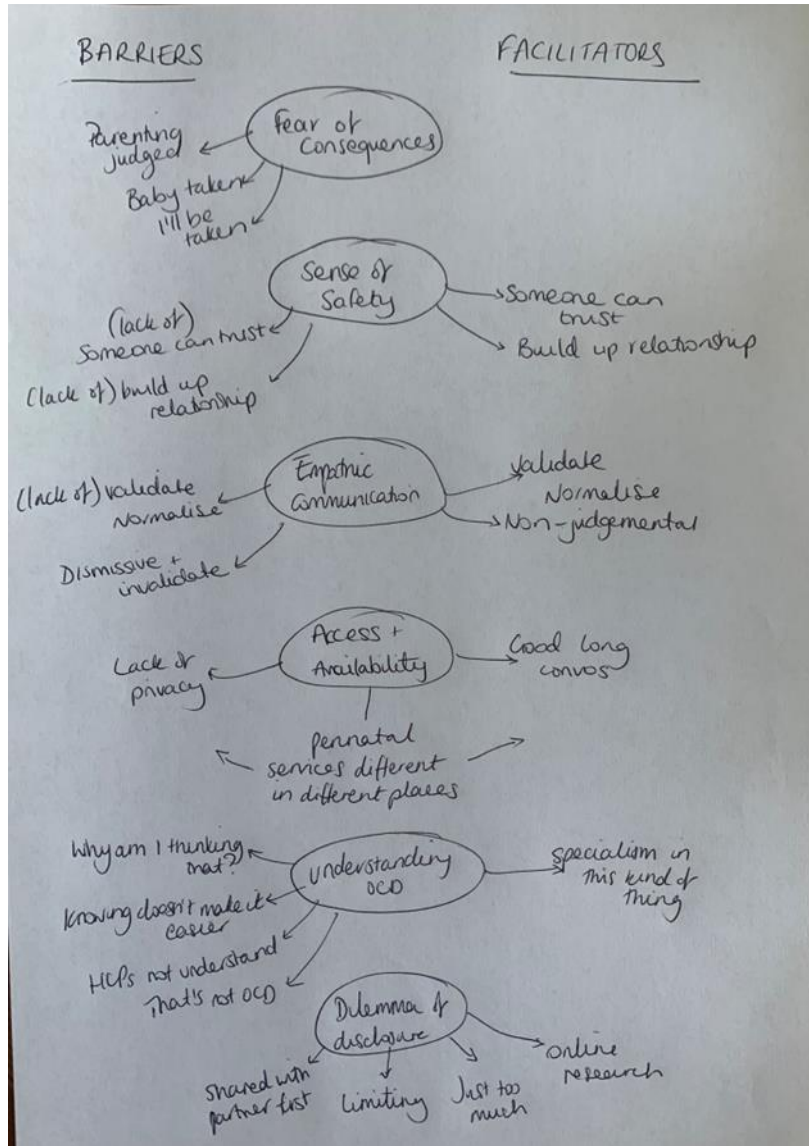 BARRIERS
FACILITATORS
Fear of
Consequences
Parenting
judged
Baby taken
I'll be
taken
Sense of
Safety
(lack of)
Someone can trust
(lack of) build up
relationship
Someone can
trust
Build up relationship
Empathic
Communication
(lack of) validate
Normalise
Dismissive +
invalidate
Validate
Normalise
Non-judgemental
Access +
Availability
Lack of
privacy
Good long
convos
perinatal
services different
in different places
Understanding
OCD
Why am I thinking
that?
Knowing doesn't make it
easier
HCPs not understand
That's not OCD
specialism in
this kind of
thing
Dilemma of
disclosure
Shared with
partner first
Limiting
Just too
much
online
research